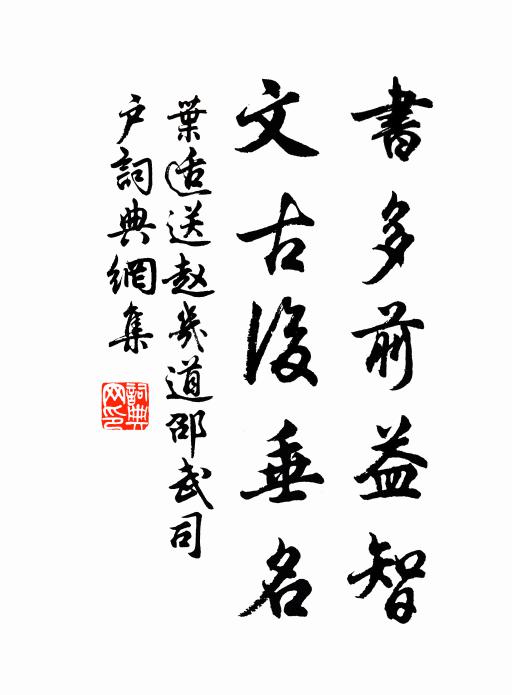 書多前益智
文古後垂名
葉适送趙幾道邵武司
户詞典網集
詞典網印